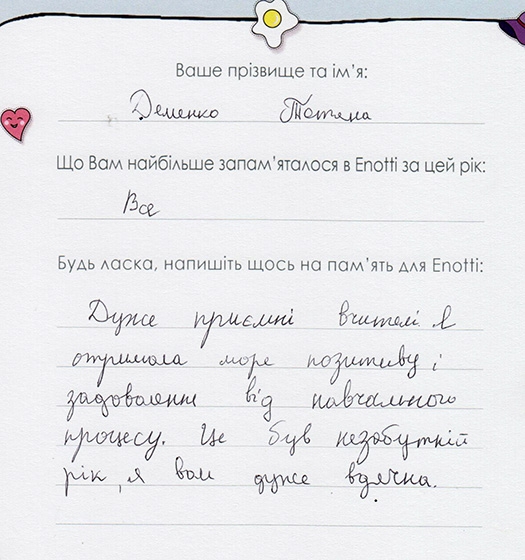 Ваше прізвище та ім'я:
Деменко Тетяна
Що Вам найбільше запам'яталося в Enotti за цей рік:
Все
Будь ласка, напишіть щось на пам'ять для Enotti:
Дуже приємні вчителі. Я
отримала море позитиву і
задоволенні від навчального
процесу. Це був незабутній
рік, я вам дуже вдячна.